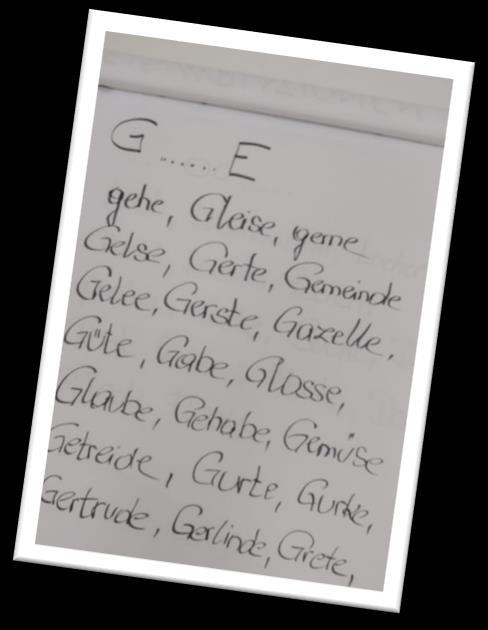 G ...... E
gehe, Gleise, gerne
Gelse, Gerte, Gemeinde
Gelee, Gerste, Gazelle,
Güte, Gabe, Glosse,
Glaube, Gehabe, Gemüse
Getreide, Gurte, Gurke,
Gertrude, Gerlinde, Grete,